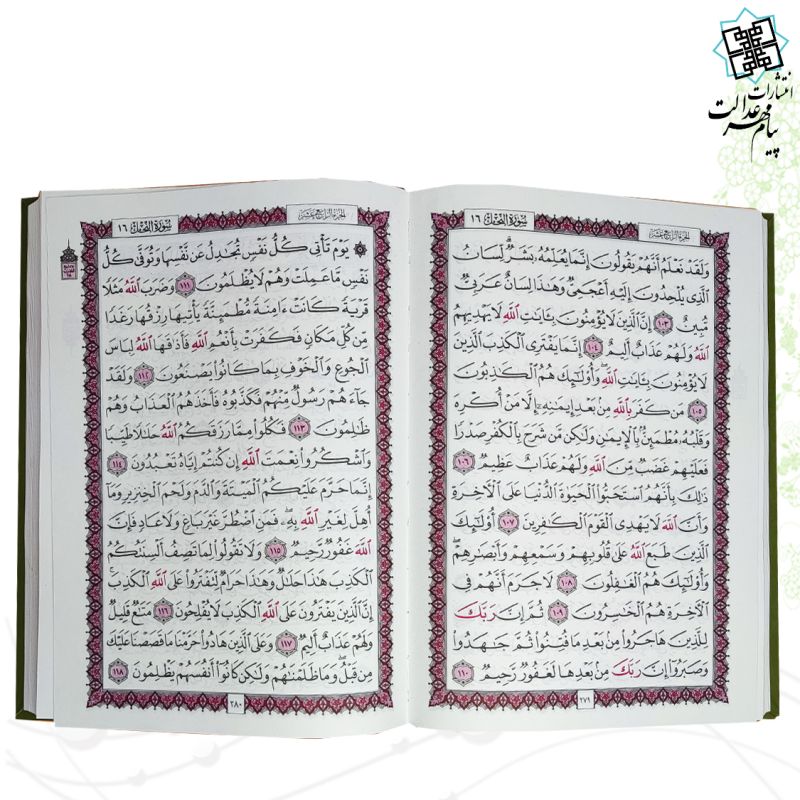 انتشارات
پیام مهر عدالت
سُورَةُ النَّحْلِ ١٦
الجُزءُ الرّابِعَ عَشَرَ
وَلَقَدْ نَعْلَمُ أَنَّهُمْ يَقُولُونَ إِنَّمَا يُعَلِّمُهُۥ بَشَرٌۗ لِّسَانُ
ٱلَّذِى يُلْحِدُونَ إِلَيْهِ أَعْجَمِىٌّ وَهَٰذَا لِسَانٌ عَرَبِىٌّ
مُّبِينٌ ١٠٣ إِنَّ ٱلَّذِينَ لَا يُؤْمِنُونَ بِـَٔايَٰتِ ٱللَّهِ لَا يَهْدِيهِمُ
ٱللَّهُ وَلَهُمْ عَذَابٌ أَلِيمٌ ١٠٤ إِنَّمَا يَفْتَرِى ٱلْكَذِبَ ٱلَّذِينَ
لَا يُؤْمِنُونَ بِـَٔايَٰتِ ٱللَّهِۖ وَأُو۟لَٰٓئِكَ هُمُ ٱلْكَٰذِبُونَ
١٠٥ مَن كَفَرَ بِٱللَّهِ مِنۢ بَعْدِ إِيمَٰنِهِۦٓ إِلَّا مَنْ أُكْرِهَ
وَقَلْبُهُۥ مُطْمَئِنٌّۢ بِٱلْإِيمَٰنِ وَلَٰكِن مَّن شَرَحَ بِٱلْكُفْرِ صَدْرًا
فَعَلَيْهِمْ غَضَبٌ مِّنَ ٱللَّهِ وَلَهُمْ عَذَابٌ عَظِيمٌ ١٠٦
ذَٰلِكَ بِأَنَّهُمُ ٱسْتَحَبُّوا۟ ٱلْحَيَوٰةَ ٱلدُّنْيَا عَلَى ٱلْـَٔاخِرَةِ
وَأَنَّ ٱللَّهَ لَا يَهْدِى ٱلْقَوْمَ ٱلْكَٰفِرِينَ ١٠٧ أُو۟لَٰٓئِكَ
ٱلَّذِينَ طَبَعَ ٱللَّهُ عَلَىٰ قُلُوبِهِمْ وَسَمْعِهِمْ وَأَبْصَٰرِهِمْۖ
وَأُو۟لَٰٓئِكَ هُمُ ٱلْغَٰفِلُونَ ١٠٨ لَا جَرَمَ أَنَّهُمْ فِى
ٱلْـَٔاخِرَةِ هُمُ ٱلْخَٰسِرُونَ ١٠٩ ثُمَّ إِنَّ رَبَّكَ
لِلَّذِينَ هَاجَرُوا۟ مِنۢ بَعْدِ مَا فُتِنُوا۟ ثُمَّ جَٰهَدُوا۟
وَصَبَرُوٓا۟ إِنَّ رَبَّكَ مِنۢ بَعْدِهَا لَغَفُورٌ رَّحِيمٌ ١١٠
٢٧٩
سُورَةُ النَّحْلِ ١٦
الجُزءُ الرّابِعَ عَشَرَ
يَوْمَ تَأْتِى كُلُّ نَفْسٍ تُجَٰدِلُ عَن نَّفْسِهَا وَتُوَفَّىٰ كُلُّ
نَفْسٍ مَّا عَمِلَتْ وَهُمْ لَا يُظْلَمُونَ ١١١ وَضَرَبَ ٱللَّهُ مَثَلًا
قَرْيَةً كَانَتْ ءَامِنَةً مُّطْمَئِنَّةً يَأْتِيهَا رِزْقُهَا رَغَدًا
مِّن كُلِّ مَكَانٍ فَكَفَرَتْ بِأَنْعُمِ ٱللَّهِ فَأَذَٰقَهَا ٱللَّهُ لِبَاسَ
ٱلْجُوعِ وَٱلْخَوْفِ بِمَا كَانُوا۟ يَصْنَعُونَ ١١٢ وَلَقَدْ
جَآءَهُمْ رَسُولٌ مِّنْهُمْ فَكَذَّبُوهُ فَأَخَذَهُمُ ٱلْعَذَابُ وَهُمْ
ظَٰلِمُونَ ١١٣ فَكُلُوا۟ مِمَّا رَزَقَكُمُ ٱللَّهُ حَلَٰلًا طَيِّبًا
وَٱشْكُرُوا۟ نِعْمَتَ ٱللَّهِ إِن كُنتُمْ إِيَّاهُ تَعْبُدُونَ ١١٤
إِنَّمَا حَرَّمَ عَلَيْكُمُ ٱلْمَيْتَةَ وَٱلدَّمَ وَلَحْمَ ٱلْخِنزِيرِ وَمَآ
أُهِلَّ لِغَيْرِ ٱللَّهِ بِهِۦۖ فَمَنِ ٱضْطُرَّ غَيْرَ بَاغٍ وَلَا عَادٍ فَإِنَّ
ٱللَّهَ غَفُورٌ رَّحِيمٌ ١١٥ وَلَا تَقُولُوا۟ لِمَا تَصِفُ أَلْسِنَتُكُمُ
ٱلْكَذِبَ هَٰذَا حَلَٰلٌ وَهَٰذَا حَرَامٌ لِّتَفْتَرُوا۟ عَلَى ٱللَّهِ ٱلْكَذِبَۚ
إِنَّ ٱلَّذِينَ يَفْتَرُونَ عَلَى ٱللَّهِ ٱلْكَذِبَ لَا يُفْلِحُونَ ١١٦ مَتَٰعٌ قَلِيلٌ
وَلَهُمْ عَذَابٌ أَلِيمٌ ١١٧ وَعَلَى ٱلَّذِينَ هَادُوا۟ حَرَّمْنَا مَا قَصَصْنَا عَلَيْكَ
مِن قَبْلُۖ وَمَا ظَلَمْنَٰهُمْ وَلَٰكِن كَانُوٓا۟ أَنفُسَهُمْ يَظْلِمُونَ ١١٨
٢٨٠